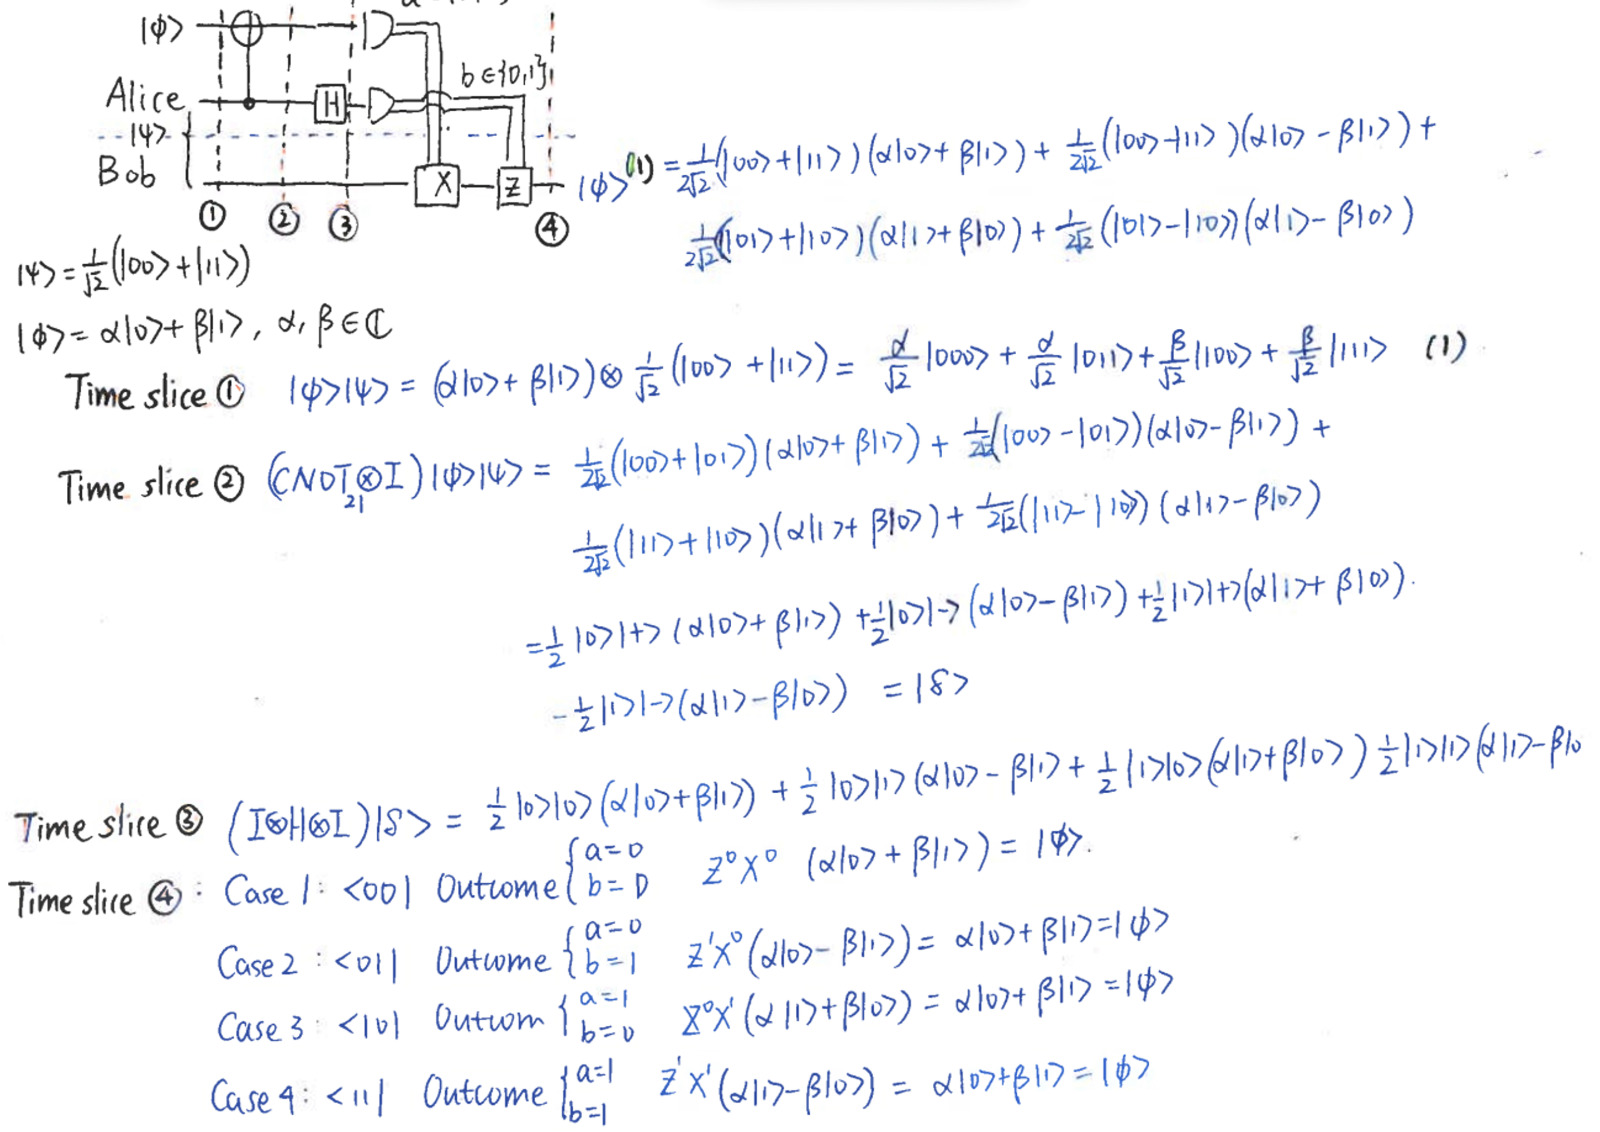 |ϕ>
Alice
b∈{0,1}
|ψ>
Bob
H
X
Z
|ϕ>
① ② ③ ④
(1) = 1/2√2 (|00>+|11>)(α|0>+β|1>) + 1/2√2 (|00>-|11>)(α|0>-β|1>) +
1/2√2 (|01>+|10>)(α|1>+β|0>) + 1/2√2 (|01>-|10>)(α|1>-β|0>)
|ψ> = 1/√2 (|00>+|11>)
|ϕ> = α|0>+β|1>, α, β∈ℂ
Time slice ① |ϕ>|ψ> = (α|0>+β|1>)⊗ 1/√2 (|00>+|11>) = α/√2 |000> + α/√2 |011> + β/√2 |100> + β/√2 |111> (1)
Time slice ② (CNOT₂₁⊗I)|ϕ>|ψ> = 1/2√2 (|00>+|01>)(α|0>+β|1>) + 1/2√2 (|00>-|01>)(α|0>-β|1>) +
1/2√2 (|11>+|10>)(α|1>+β|0>) + 1/2√2 (|11>-|10>)(α|1>-β|0>)
= 1/2 |0>|+>(α|0>+β|1>) + 1/2 |0>|->(α|0>-β|1>) + 1/2 |1>|+>(α|1>+β|0>).
- 1/2 |1>|->(α|1>-β|0>) = |δ>
Time slice ③ (I⊗H⊗I)|δ> = 1/2 |0>|0>(α|0>+β|1>) + 1/2 |0>|1>(α|0>-β|1> + 1/2 |1>|0>(α|1>+β|0>) 1/2 |1>|1>(α|1>-β|0
Time slice ④: Case 1: <00| Outcome { a=0 b=0 Z⁰X⁰ (α|0>+β|1>) = |ϕ>.
Case 2: <01| Outcome { a=0 b=1 Z¹X⁰(α|0>-β|1>) = α|0>+β|1> = |ϕ>
Case 3: <10| Outcom { a=1 b=0 Z⁰X¹(α|1>+β|0>) = α|0>+β|1> = |ϕ>
Case 4: <11| Outcome { a=1 b=1 Z¹X¹(α|1>-β|0>) = α|0>+β|1> = |ϕ>